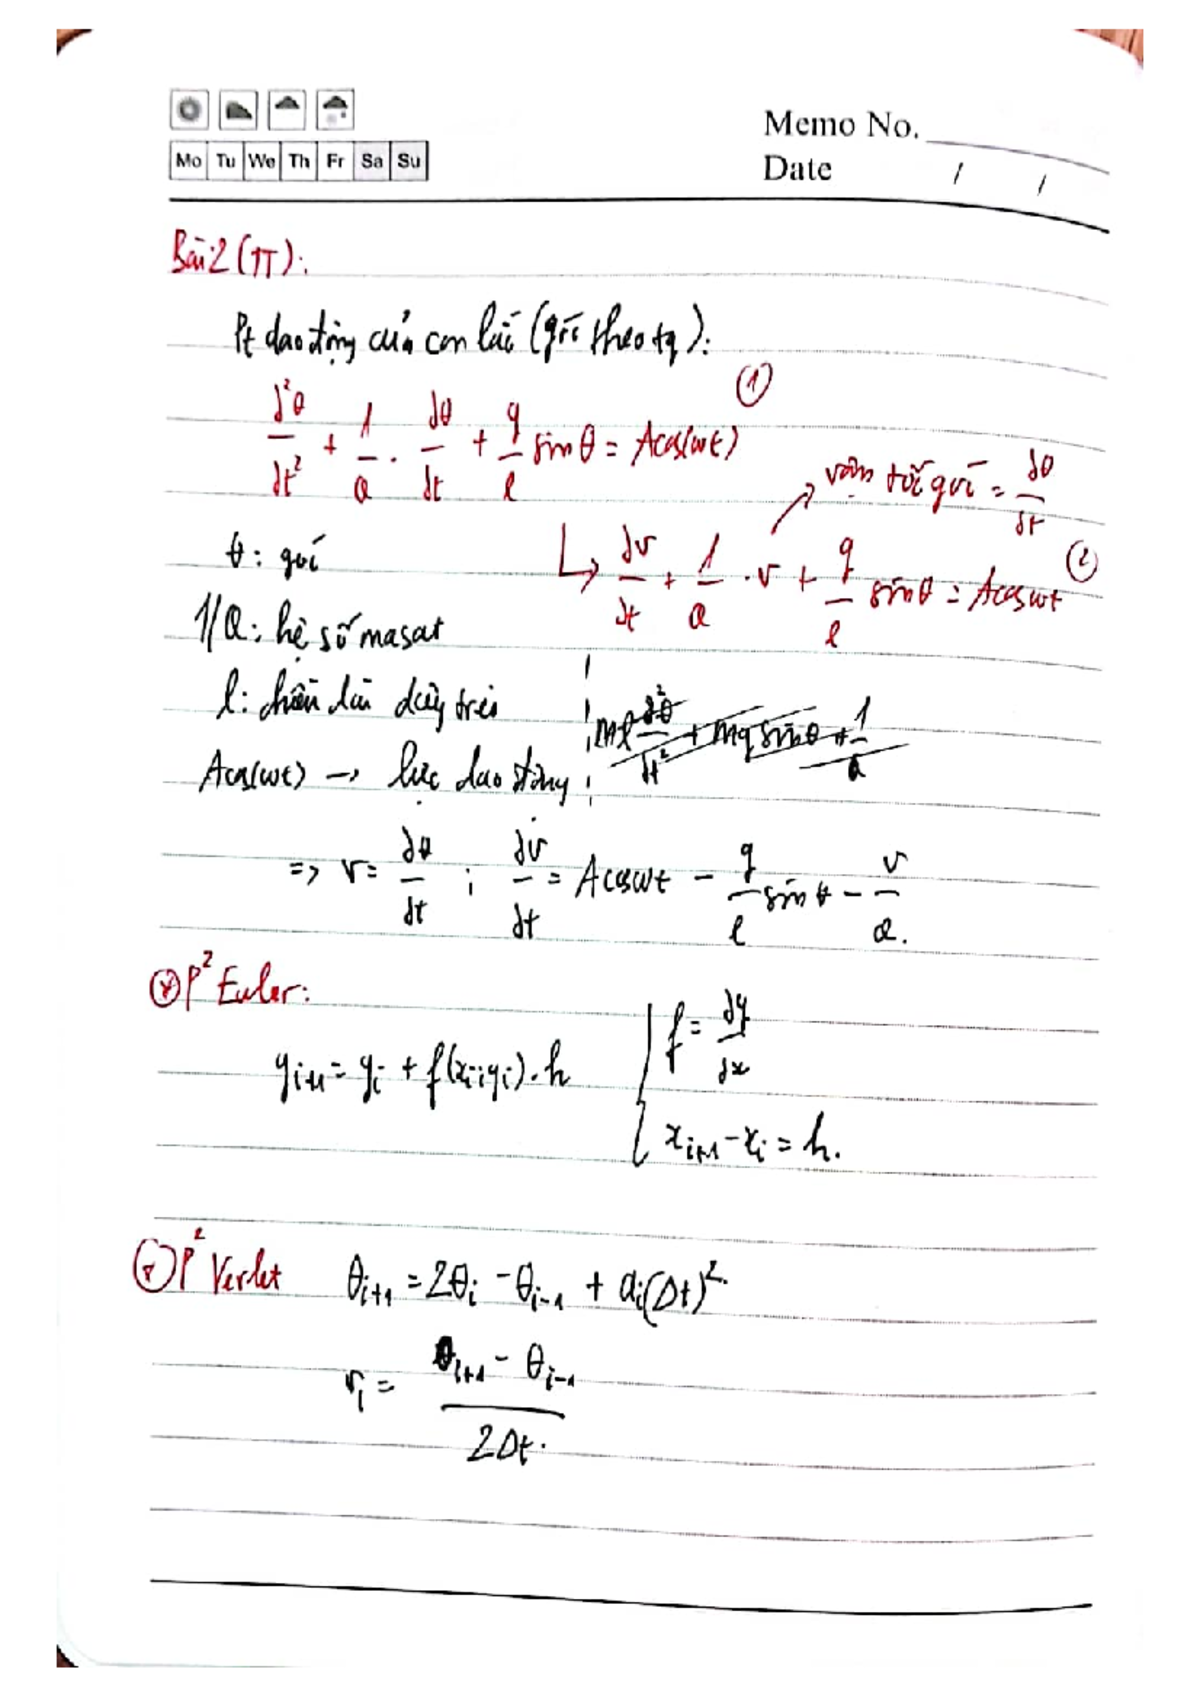 Mo Tu We Th Fr Sa Su
Memo No.
Date / /
Bài 2 (TT):
Pt dao động của con lắc (góc theo tg):
d²θ/dt² + 1/Q . dθ/dt + g/l sinθ = Acos(ωt) ①
→ vận tốc góc = dθ/dt
θ: góc
↳ dv/dt + 1/Q . v + g/l sinθ = Acosωt ②
1/Q: hệ số masat
l: chiều dài dây treo
ml d²θ/dt² + mg sinθ + 1/Q
Acos(ωt) → lực dao động
=> v = dθ/dt ; dv/dt = Acosωt - g/l sinθ - v/Q.
P² Euler:
y_{i+1} = y_i + f(x_i; y_i) . h
f = dy/dx
x_{i+1} - x_i = h.
P² Verlet θ_{i+1} = 2θ_i - θ_{i-1} + a_i(Δt)².
v_i = (θ_{i+1} - θ_{i-1}) / 2Δt.